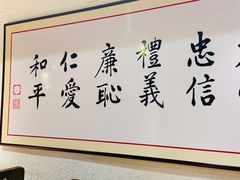 忠信
禮義
廉恥
仁愛
和平